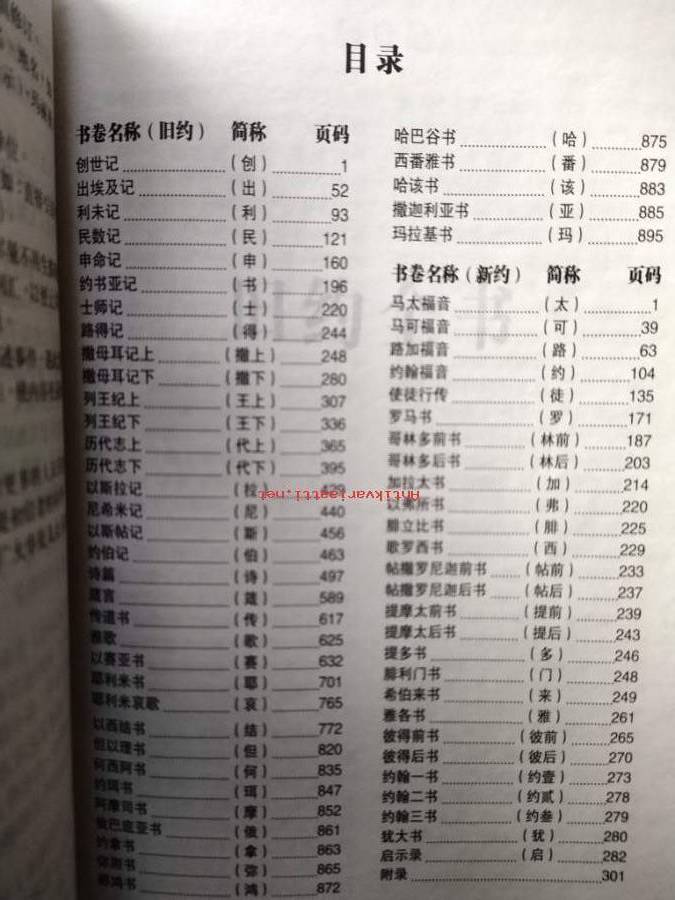 目录
书卷名称（旧约） 简称 页码
创世记（创）1
出埃及记（出）52
利未记（利）93
民数记（民）121
申命记（申）160
约书亚记（书）196
士师记（士）220
路得记（得）244
撒母耳记上（撒上）248
撒母耳记下（撒下）280
列王纪上（王上）307
列王纪下（王下）336
历代志上（代上）365
历代志下（代下）395
以斯拉记（拉）429
尼希米记（尼）440
以斯帖记（斯）456
约伯记（伯）463
诗篇（诗）497
箴言（箴）589
传道书（传）617
雅歌（歌）625
以赛亚书（赛）632
耶利米书（耶）701
耶利米哀歌（哀）765
以西结书（结）772
但以理书（但）820
何西阿书（何）835
约珥书（珥）847
阿摩司书（摩）852
俄巴底亚书（俄）861
约拿书（拿）863
弥迦书（弥）865
那鸿书（鸿）872
哈巴谷书（哈）875
西番雅书（番）879
哈该书（该）883
撒迦利亚书（亚）885
玛拉基书（玛）895
书卷名称（新约） 简称 页码
马太福音（太）1
马可福音（可）39
路加福音（路）63
约翰福音（约）104
使徒行传（徒）135
罗马书（罗）171
哥林多前书（林前）187
哥林多后书（林后）203
加拉太书（加）214
以弗所书（弗）220
腓立比书（腓）225
歌罗西书（西）229
帖撒罗尼迦前书（帖前）233
帖撒罗尼迦后书（帖后）237
提摩太前书（提前）239
提摩太后书（提后）243
提多书（多）246
腓利门书（门）248
希伯来书（来）249
雅各书（雅）261
彼得前书（彼前）265
彼得后书（彼后）270
约翰一书（约壹）273
约翰二书（约贰）278
约翰三书（约叁）279
犹大书（犹）280
启示录（启）282
附录 301
Antikvariaatti.net